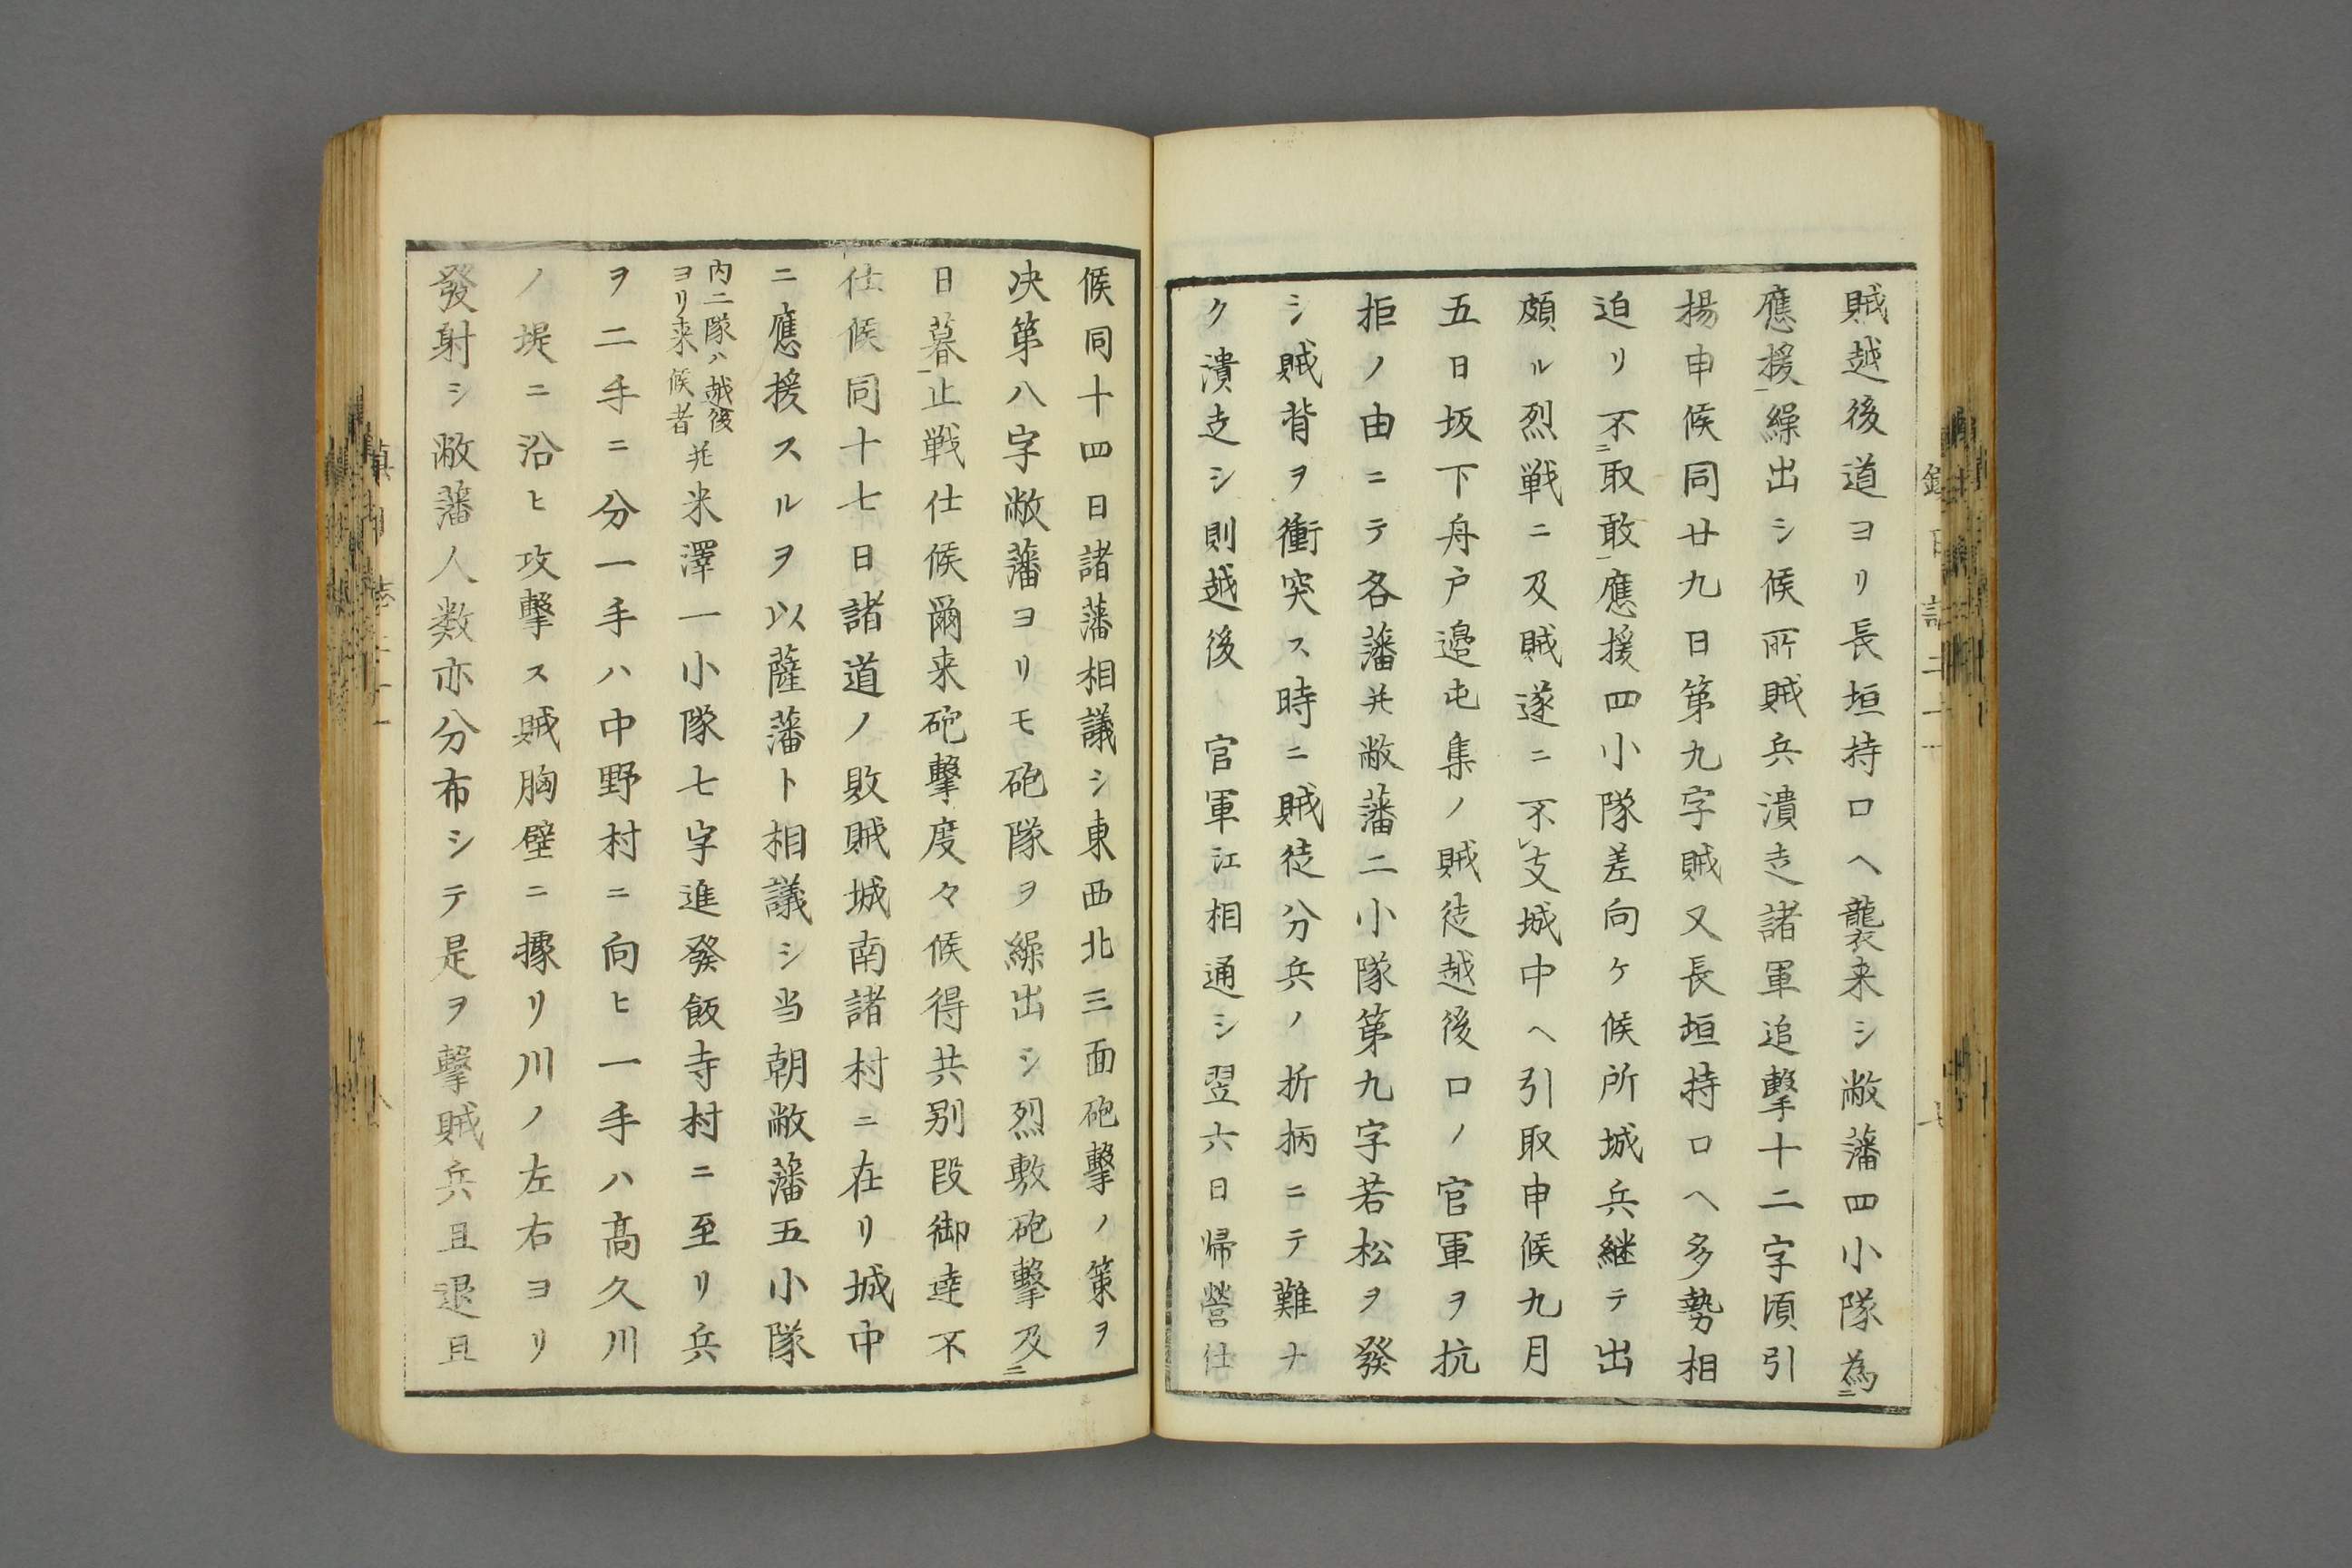 賊越後道ヨリ長垣持口ヘ襲来シ敝藩四小隊為ニ
應援一繰出シ候所賊兵潰走諸軍追撃十二字頃引
揚申候同廿九日第九字賊又長垣持口ヘ多勢相
迫リ不ニ取敢一應援四小隊差向ケ候所城兵継テ出
頗ル烈戦ニ及賊遂ニ不レ支城中ヘ引取申候九月
五日坂下舟戸邉屯集ノ賊徒越後口ノ官軍ヲ抗
拒ノ由ニテ各藩并敝藩二小隊第九字若松ヲ發
シ賊背ヲ衝突ス時ニ賊徒分兵ノ折柄ニテ難ナ
ク潰走シ則越後ノ官軍江相通シ翌六日帰營仕
候同十四日諸藩相議シ東西北三面砲撃ノ策ヲ
决第八字敝藩ヨリモ砲隊ヲ繰出シ烈敷砲撃及ニ
日暮一止戦仕候爾来砲撃度々候得共別段御達不
仕候同十七日諸道ノ敗賊城南諸村ニ在リ城中
ニ應援スルヲ以薩藩ト相議シ当朝敝藩五小隊
内二隊ハ越後
ヨリ来候者
并米澤一小隊七字進發飯寺村ニ至リ兵
ヲ二手ニ分一手ハ中野村ニ向ヒ一手ハ髙久川
ノ堤ニ沿ヒ攻撃ス賊胸壁ニ據リ川ノ左右ヨリ
發射シ敝藩人数亦分布シテ是ヲ撃賊兵且退且